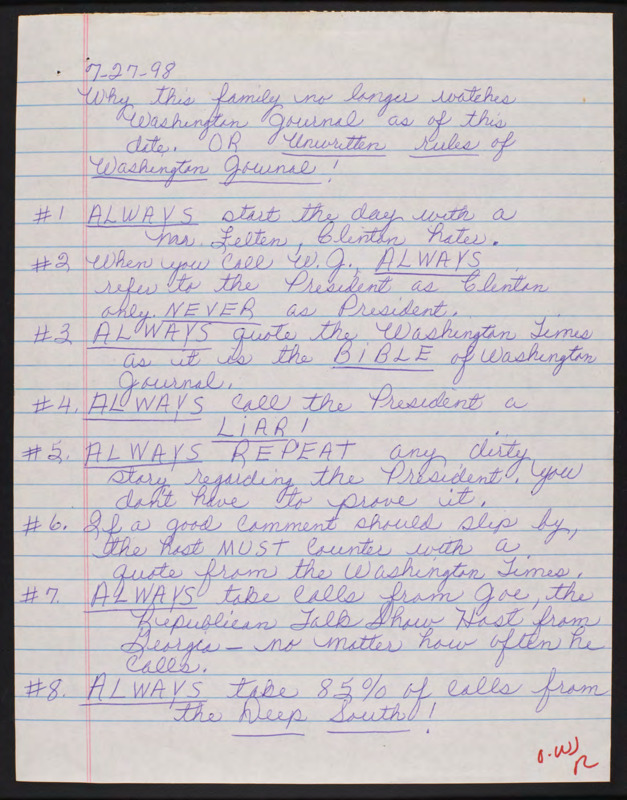 7-27-98
Why this family no longer watches
Washington Journal as of this
date. OR Unwritten rules of
Washington Journal!
#1 ALWAYS start the day with a
Mr. Felten, Clinton hater.
#2 When you call W.J. ALWAYS
refer to the President as Clinton
only. NEVER as President.
#3 ALWAYS quote the Washington Times
as it is the BIBLE of Washington
Journal.
#4. ALWAYS call the President a
LIAR!
#5. ALWAYS REPEAT any dirty
story regarding the President. You
don't have to prove it.
#6. If a good comment should slip by,
the host MUST counter with a
quote from the Washington Times.
#7. ALWAYS take calls from Joe, the
Republican Talk Show Host from
Georgia – no matter how often he
calls.
#8. ALWAYS take 85% of calls from
the Deep South!